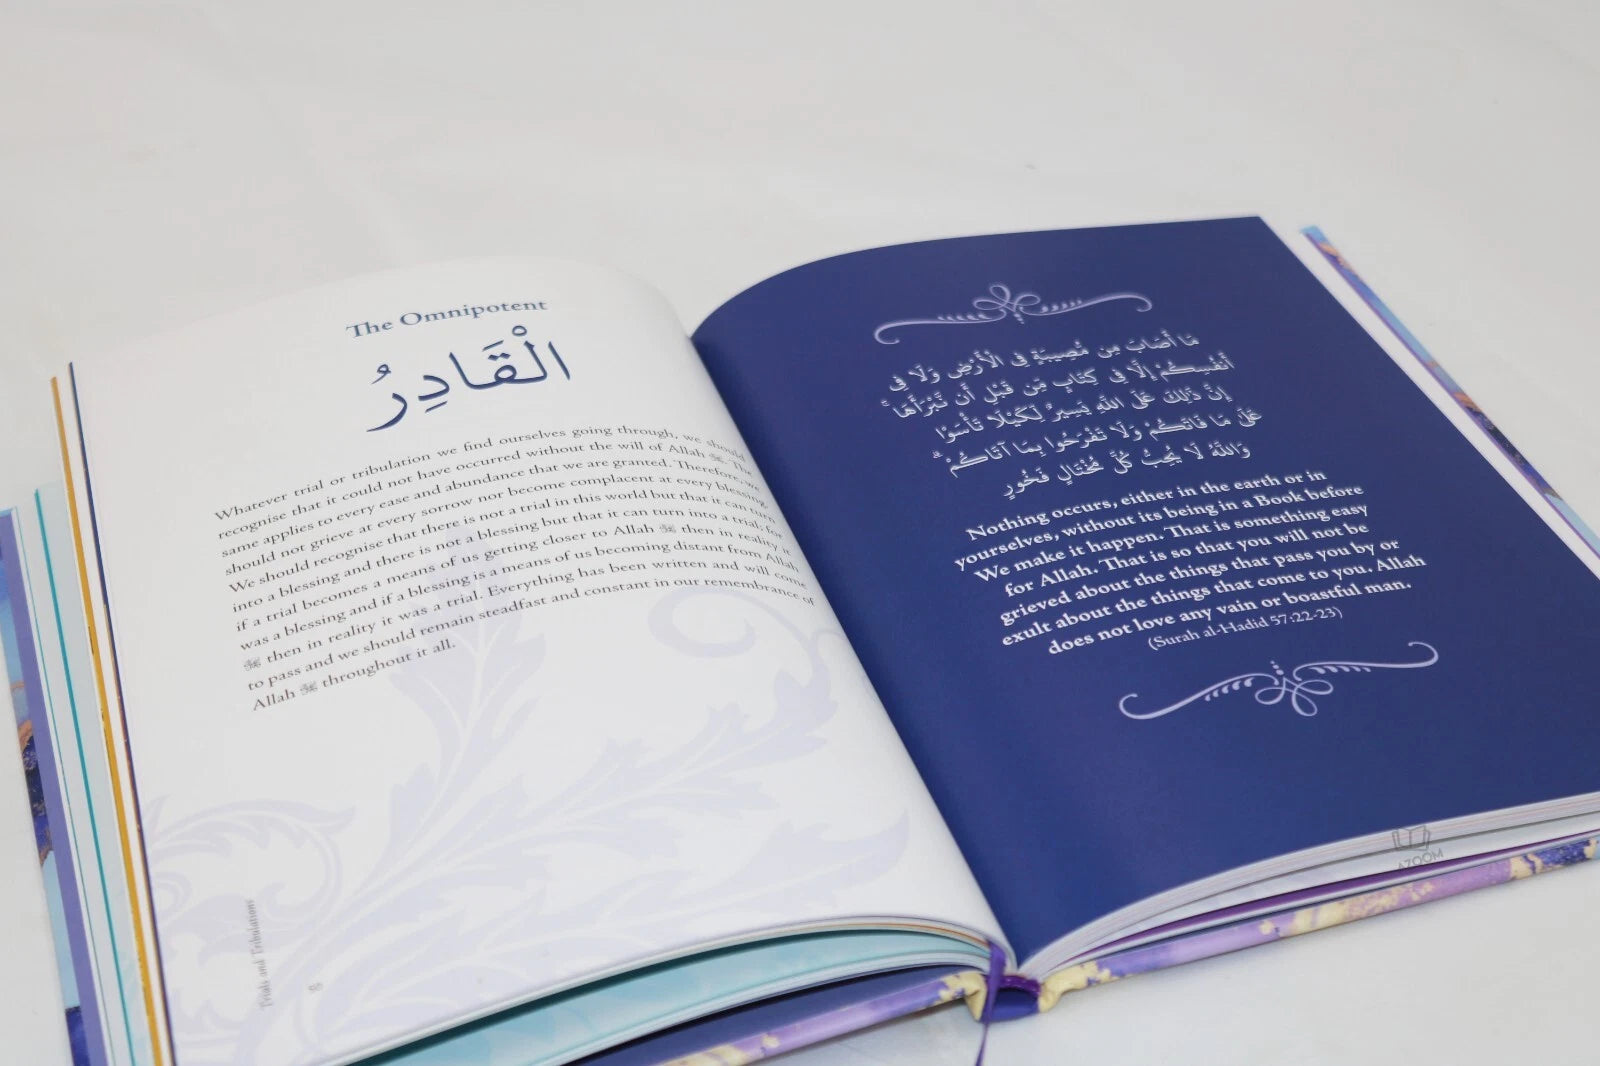 The Omnipotent
الْقَادِرُ
Whatever trial or tribulation we find ourselves going through, we should
recognise that it could not have occurred without the will of Allah ﷻ. The
same applies to every ease and abundance that we are granted. Therefore, we
should not grieve at every sorrow nor become complacent at every blessing.
We should recognise that there is not a trial in this world but that it can turn
into a blessing and there is not a blessing but that it can turn into a trial; for
if a trial becomes a means of us getting closer to Allah ﷻ then in reality it
was a blessing and if a blessing is a means of us becoming distant from Allah
ﷻ then in reality it was a trial. Everything has been written and will come
to pass and we should remain steadfast and constant in our remembrance of
Allah ﷻ throughout it all.
Trials and Tribulations
مَا أَصَابَ مِن مُّصِيبَةٍ فِي الْأَرْضِ وَلَا فِي
أَنفُسِكُمْ إِلَّا فِي كِتَابٍ مِّن قَبْلِ أَن نَّبْرَأَهَا ۚ
إِنَّ ذَٰلِكَ عَلَى اللَّهِ يَسِيرٌ لِّكَيْلَا تَأْسَوْا
عَلَىٰ مَا فَاتَكُمْ وَلَا تَفْرَحُوا بِمَا آتَاكُمْ ۗ
وَاللَّهُ لَا يُحِبُّ كُلَّ مُخْتَالٍ فَخُورٍ
Nothing occurs, either in the earth or in
yourselves, without its being in a Book before
We make it happen. That is something easy
for Allah. That is so that you will not be
grieved about the things that pass you by or
exult about the things that come to you. Allah
does not love any vain or boastful man.
(Surah al-Hadid 57:22-23)
AZOOM